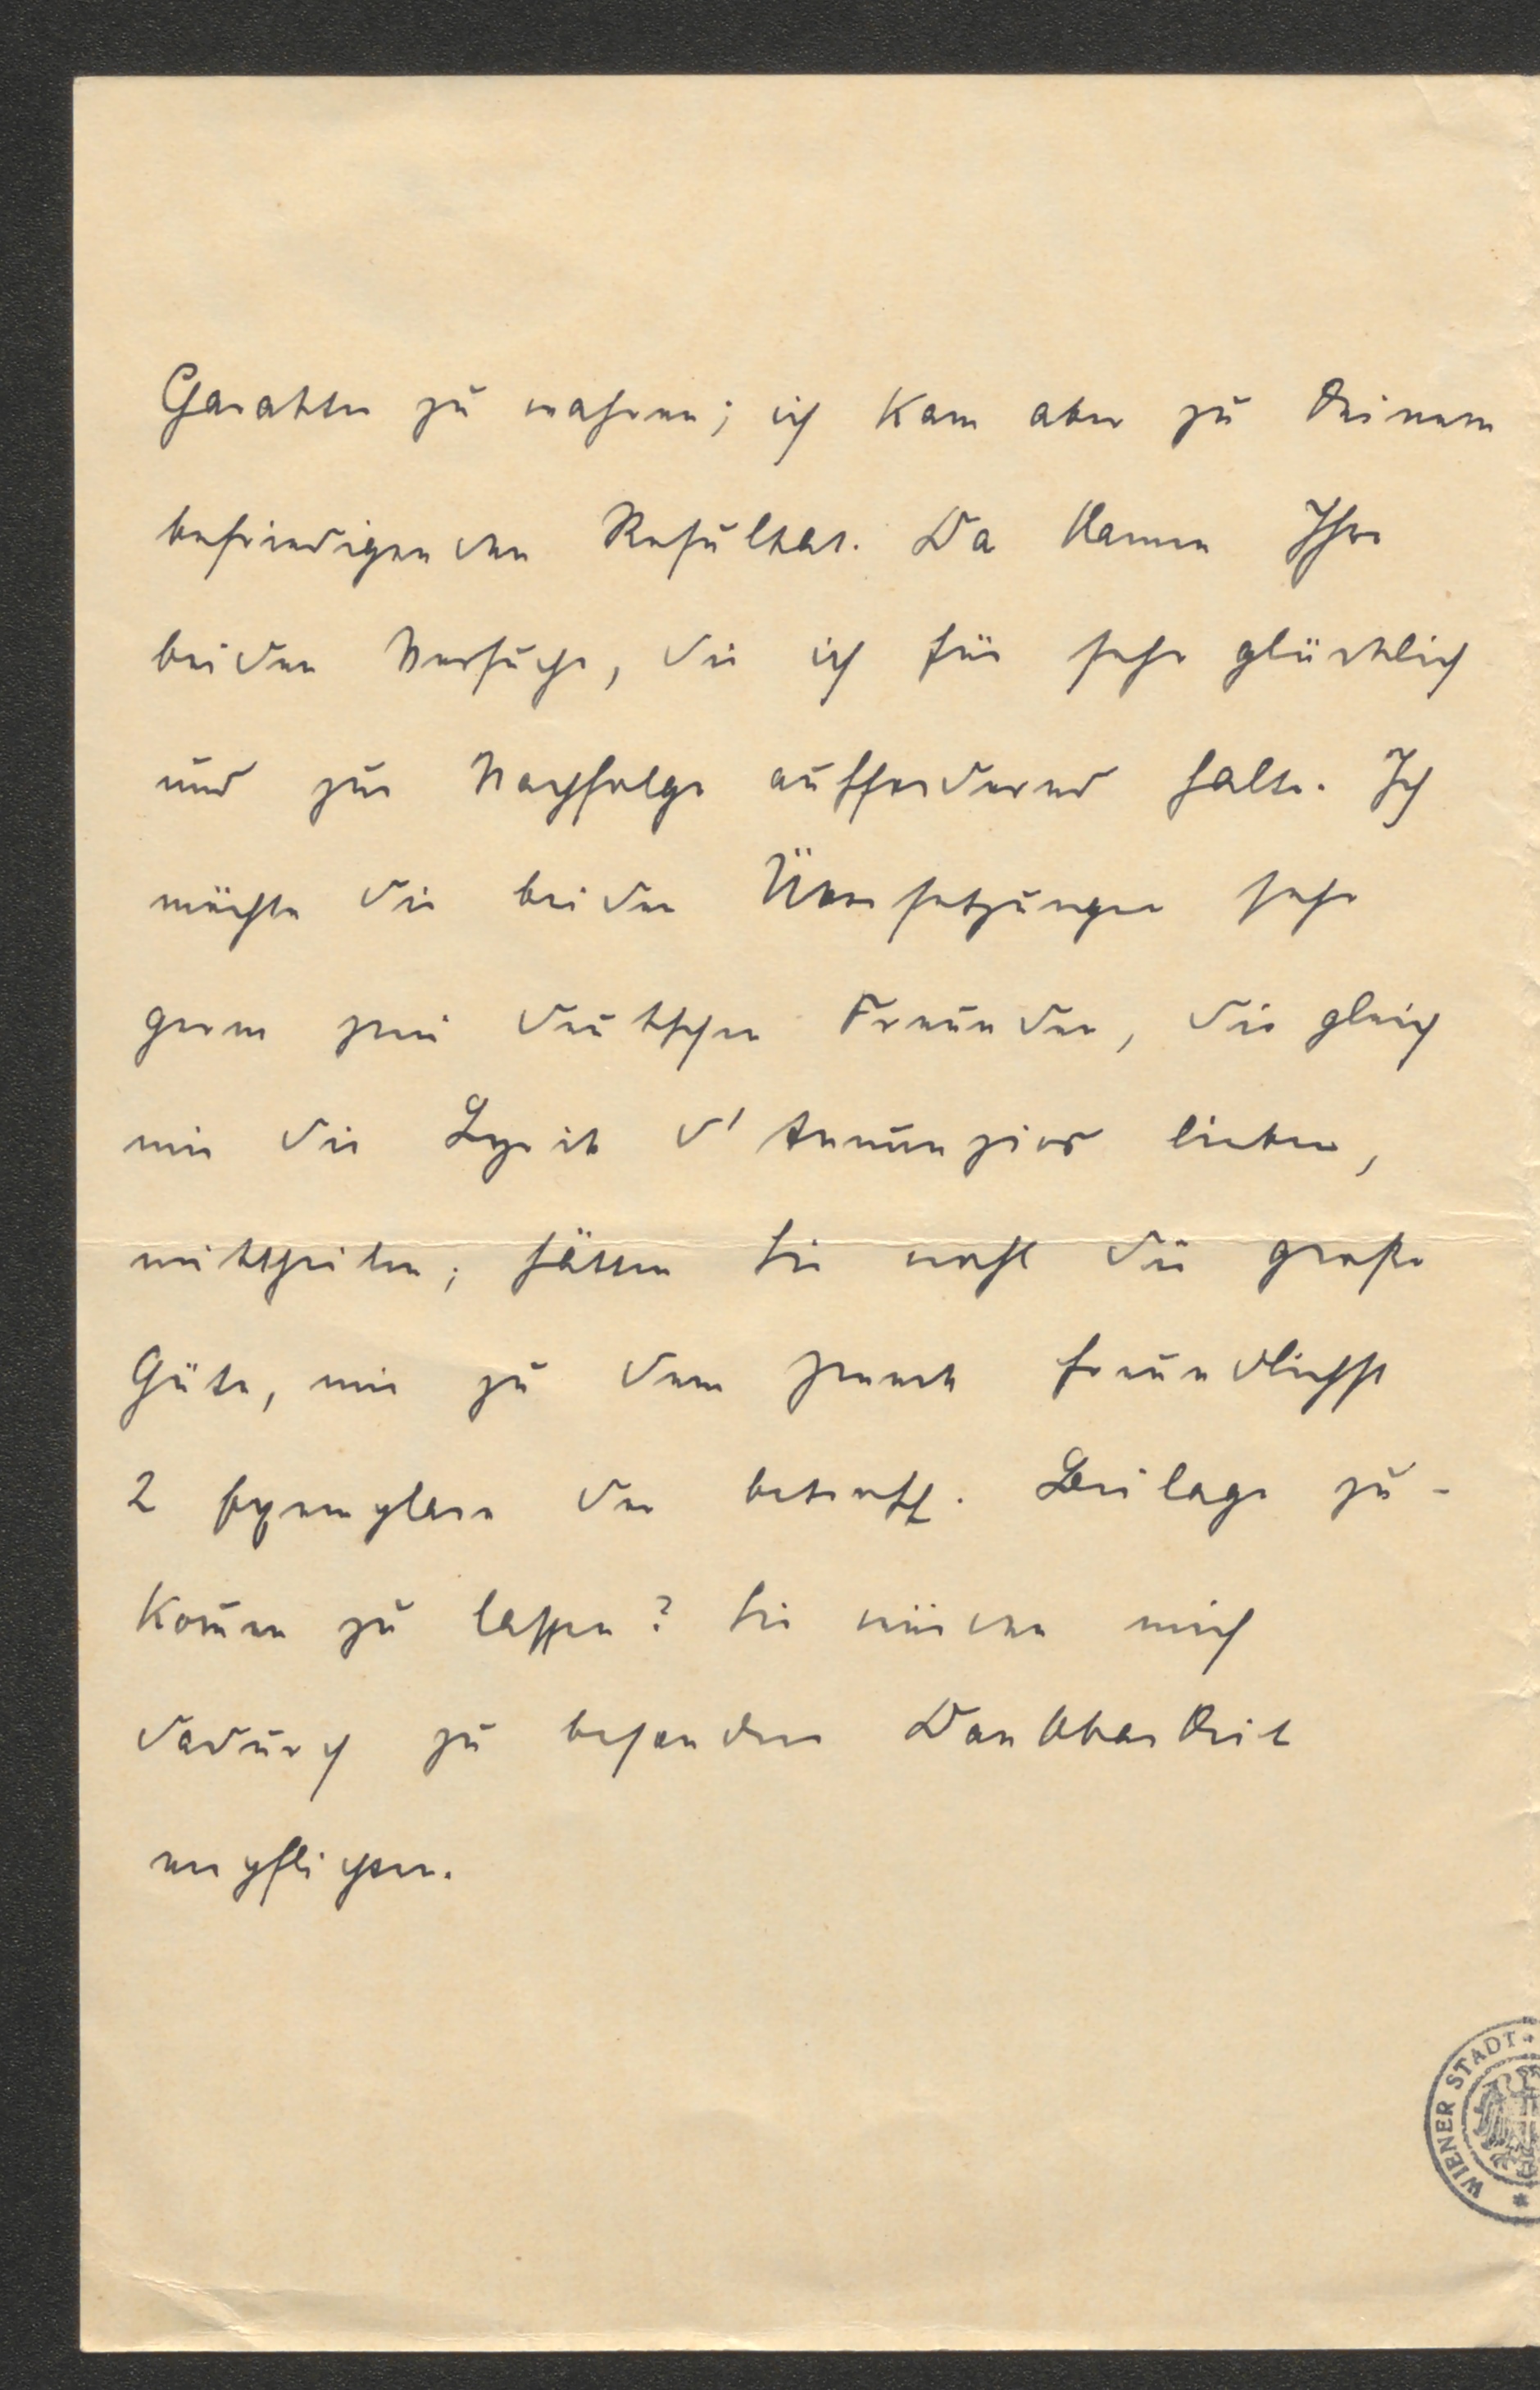 Charakter zu wahren; ich kam aber zu keinem
befriedigenden Resultat. Da kamen Ihre
beiden Versuche, die ich für sehr glücklich
und zur Nachfolge auffordernd halte. Ich
möchte die beiden Übersetzungen sehr
gern zwei deutschen Freunden, die gleich
mir die Lyrik d'Annunzios lieben,
mitteilen; hätten Sie wohl die große
Güte, mir zu dem Zweck freundlichst
2 Exemplare der betreff. Beilage zu-
kom̄en zu lassen? Sie würden mich
dadurch zu besonderer Dankbarkeit
verpflichten.
WIENER STADT